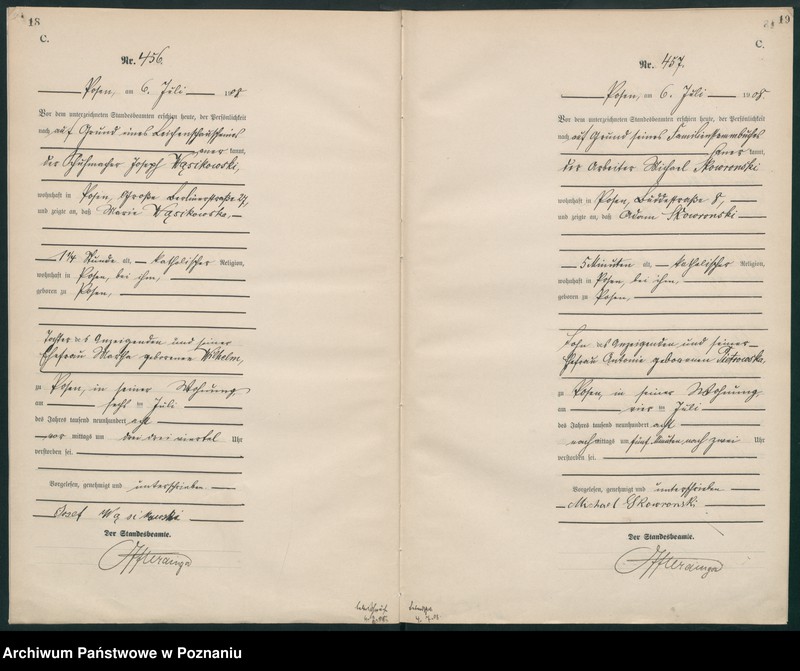 18
C.
Nr. 456.
Posen, am 6. Juli 1908
Vor dem unterzeichneten Standesbeamten erschien heute, der Persönlichkeit
nach auf Grund eines Leichenschauscheins
kannt,
der Schuhmacher Joseph Wąsikowski,
wohnhaft in Posen, Große Berlinerstraße
und zeigte an, daß Marie Wąsikowska,
1 3/4 Stunde alt, katholischer Religion,
wohnhaft in Posen, bei ihm,
geboren zu Posen,
Tochter des Anzeigenden und seiner
Ehefrau Martha geborenen Wilhelm,
zu Posen, in seiner Wohnung
am sechs ten Juli
des Jahres tausend neunhundert acht
vor mittags um drei drei viertel Uhr
verstorben sei.
Vorgelesen, genehmigt und unterschrieben
Józef Wąsikowski
Der Standesbeamte.
19
C.
Nr. 457.
Posen, am 6. Juli 1908.
Vor dem unterzeichneten Standesbeamten erschien heute, der Persönlichkeit
nach auf Grund seines Familienstammbuches
kannt,
der Arbeiter Michael Skowronski
wohnhaft in Posen, Büddestraße 8,
und zeigte an, daß Adam Skowronski
5 Minuten alt, katholischer Religion,
wohnhaft in Posen, bei ihm,
geboren zu Posen,
Sohn des Anzeigenden und seiner
Ehefrau Antonie geborenen Piotrowska,
zu Posen, in seiner Wohnung
am vier ten Juli
des Jahres tausend neunhundert acht
nach mittags um fünf Minuten nach zwei Uhr
verstorben sei.
Vorgelesen, genehmigt und unterschrieben
Michael Skowronski
Der Standesbeamte.
Archiwum Państwowe w Poznaniu